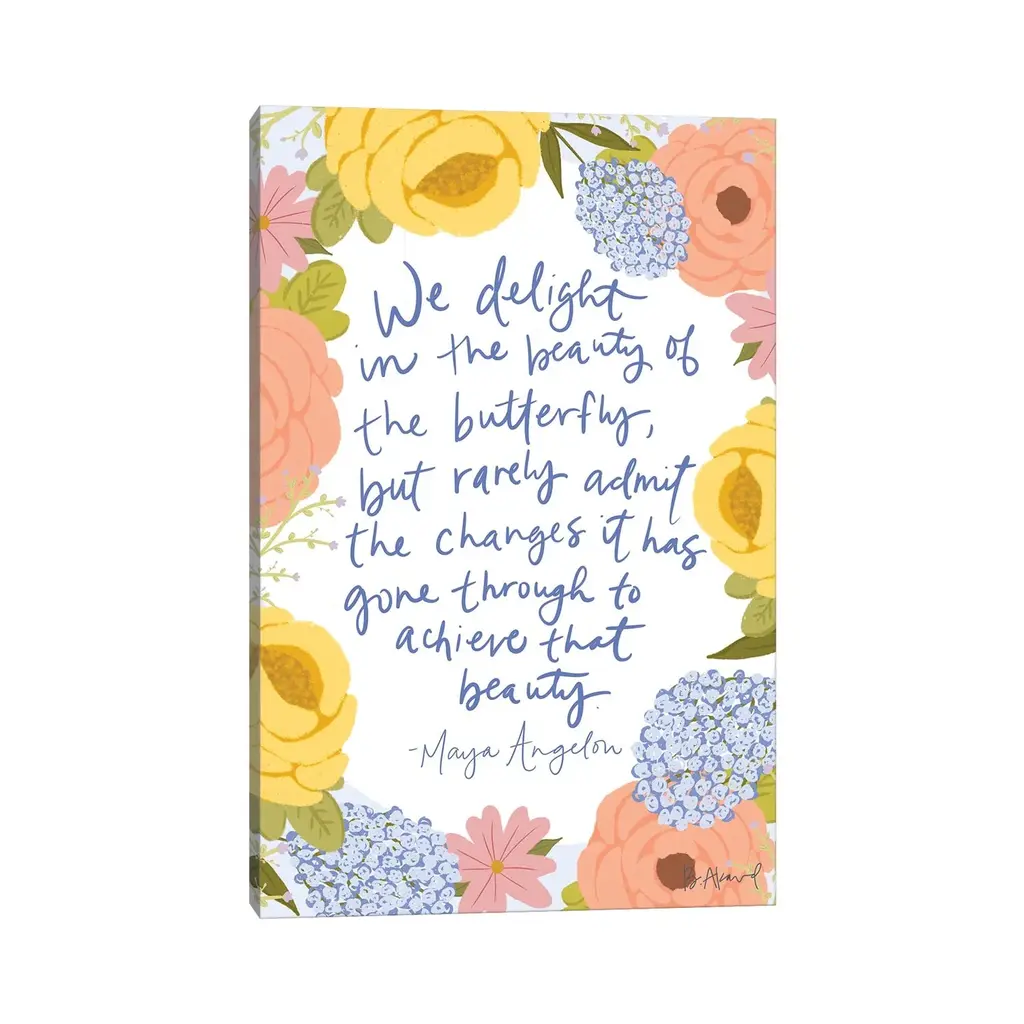 We delight
in the beauty of
the butterfly,
but rarely admit
the changes it has
gone through to
achieve that
beauty.
-Maya Angelou
B. Akard